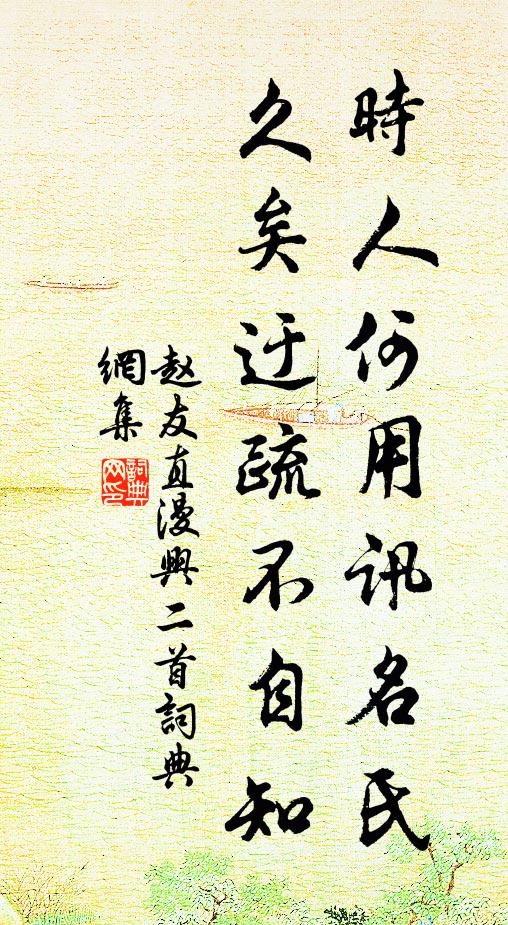 時人何用訊名氏
久矣迂疏不自知
赵友直漫興二首詞典
網集
詞典
网印